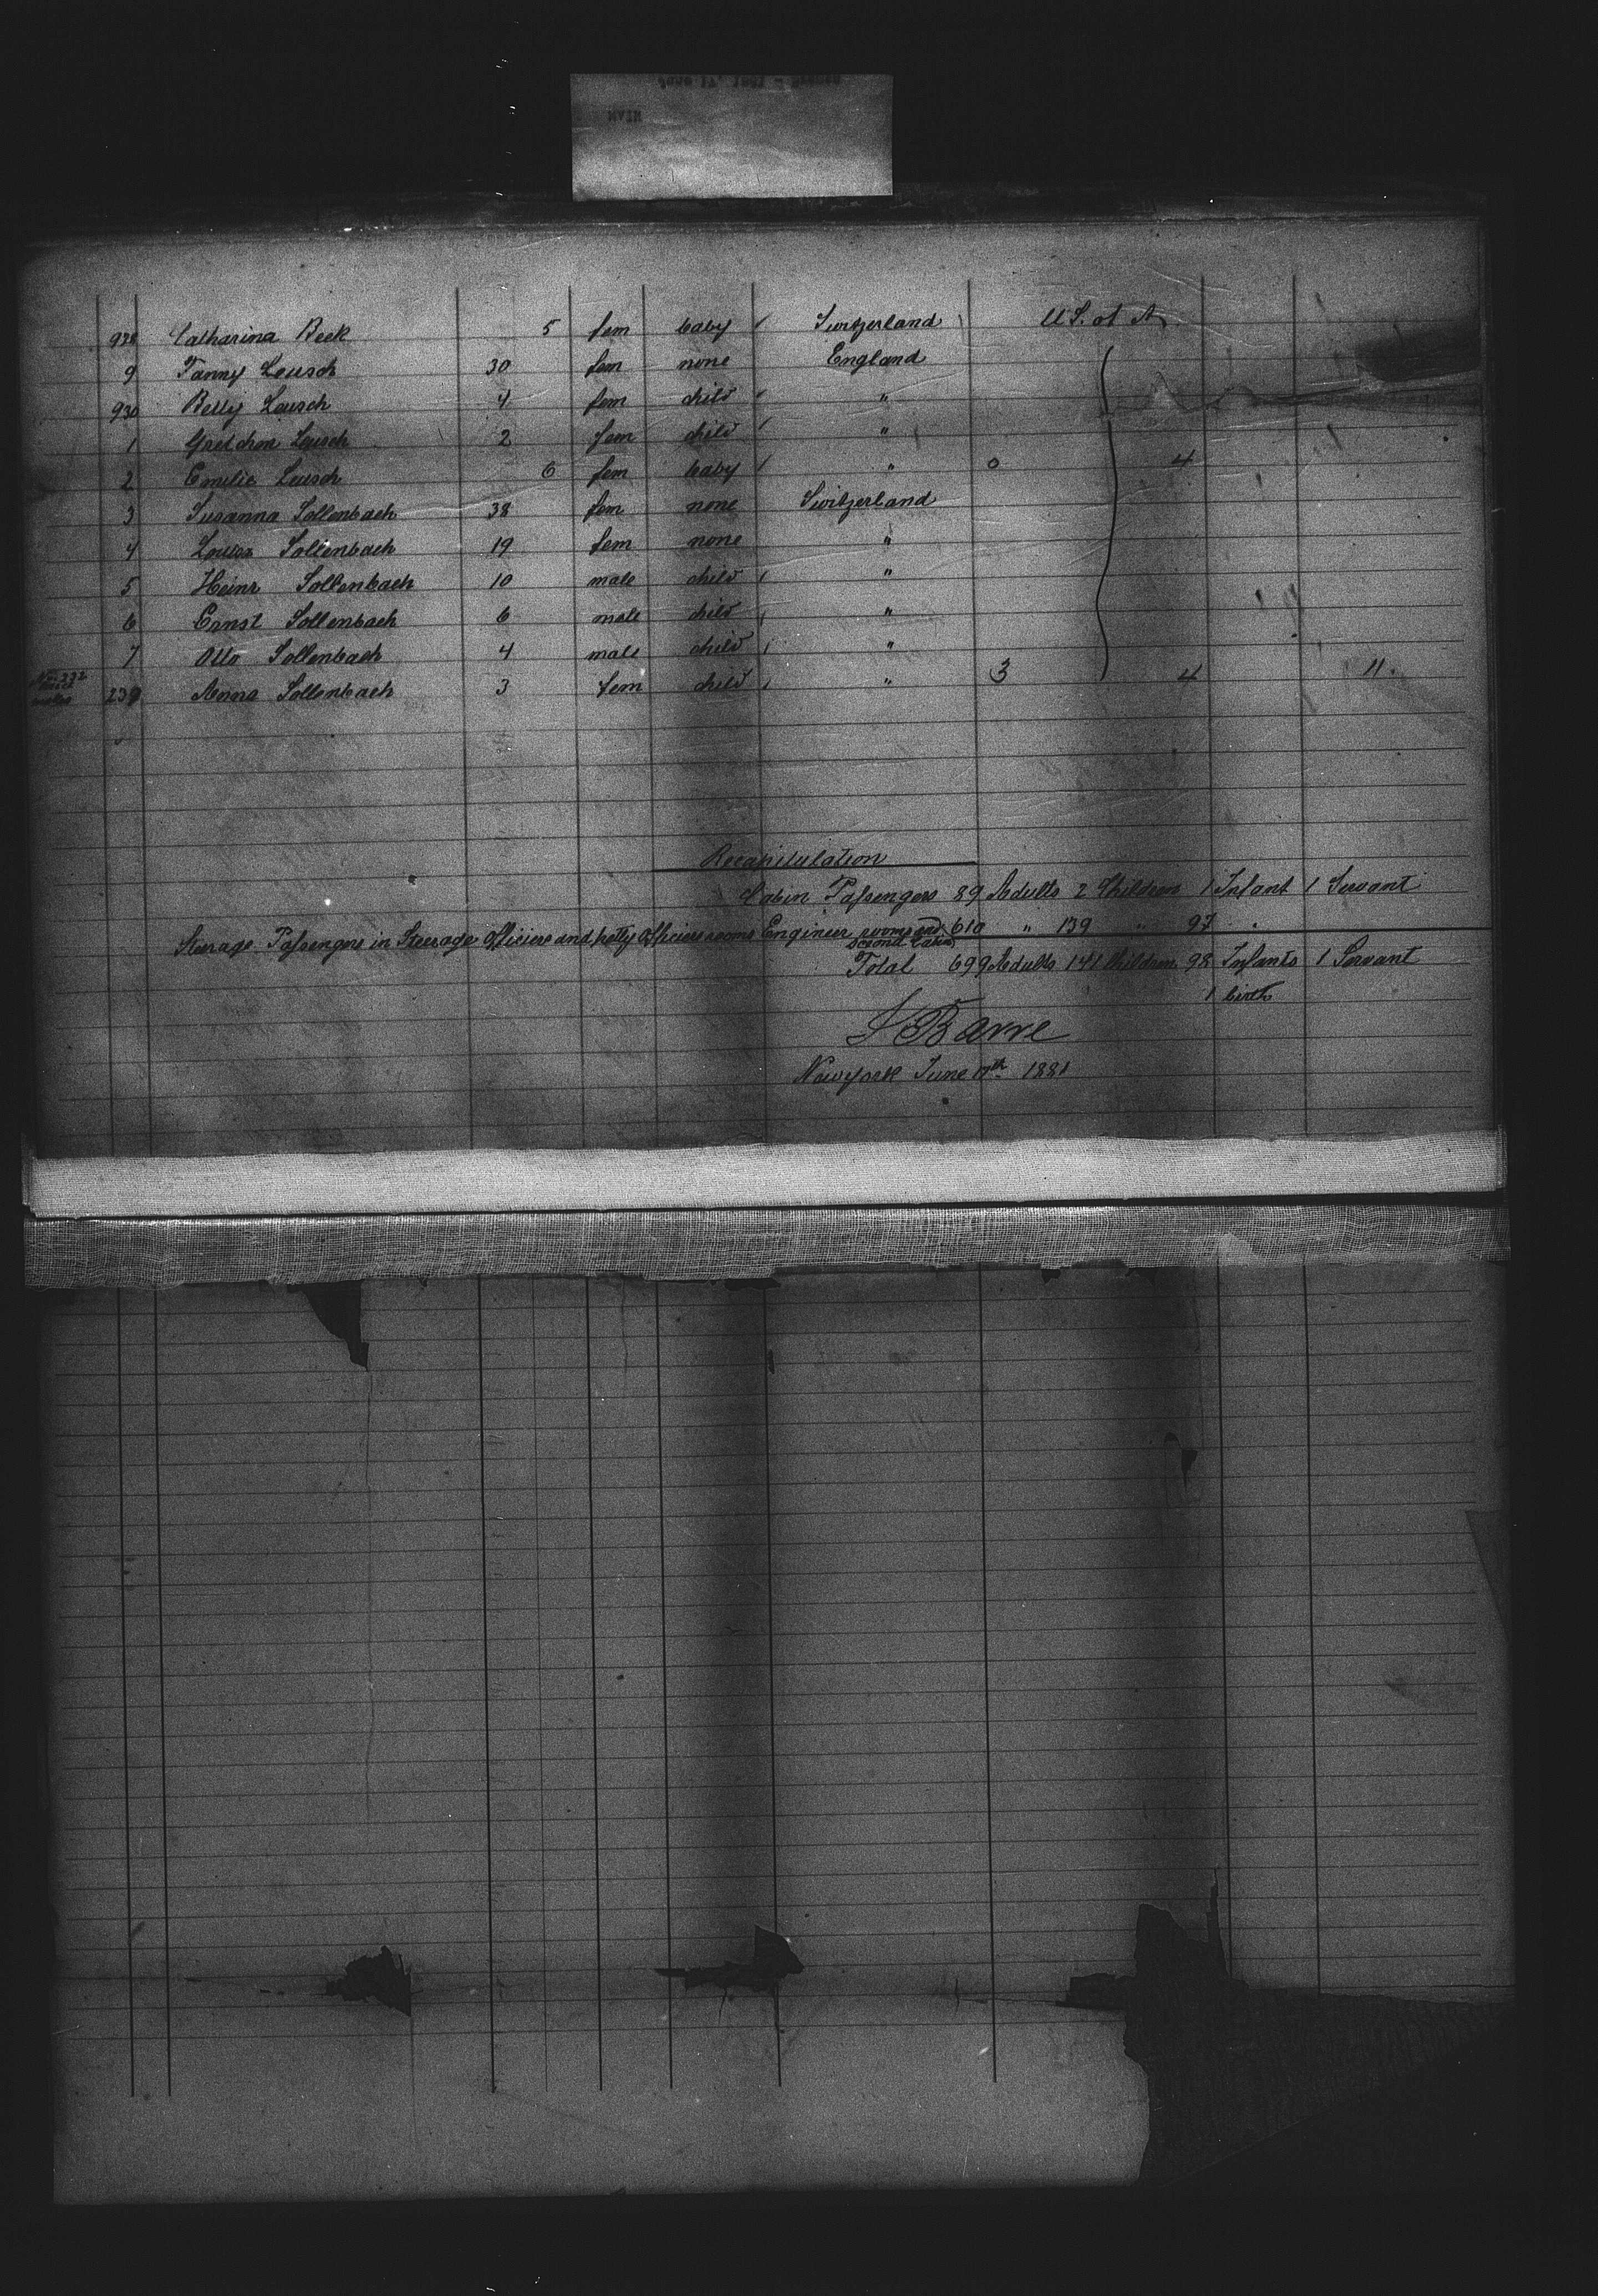 928 Catharina Beck 5 fem baby / Switzerland U.S. of A.
9 Fanny Leusch 30 fem none England
930 Betty Leusch 4 fem child / "
1 Gretchen Leusch 2 fem child / "
2 Emilie Leusch 6 fem baby / " 0 4
3 Susanna Sollenbach 38 fem none Switzerland
4 Louisa Sollenbach 19 fem none "
5 Heinr Sollenbach 10 male child / "
6 Ernst Sollenbach 6 male child / "
7 Otto Sollenbach 4 male child / "
No. 232
239 Anna Sollenbach 3 fem child / " 3 4 11.
Recapitulation
Cabin Passengers 89 Adults 2 Children 1 Infant 1 Servant
Steerage Passengers in Steerage Officiers and petty Officiers rooms Engineer rooms and 610 " 139 " 97 "
Second Cabin
Total 699 Adults 141 Children 98 Infants 1 Servant
1 birth
Barre
Newyork June 17th 1881